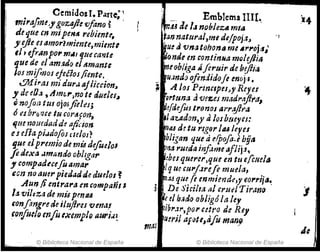 Cemidos I. Parte,
mirasme, y gozasle vfano
de que en mi pena rebiente,
y esse es amortimiente, miente
el, esfras por mas que cante
que de el amado el amante
los mismos efectos siente.
Miras mi dura aflicion,
y de ella, Amor, no te dueles,
ó no son tus ojos fieles:
ó es bronce tu coraçon,
que nouedad de aficion
es esta piadosos cielos?
que el premio de mis desuelos
se dexa amando obligar
y compadece su amar
con no auer piedad de duelos?
Aun si entrara en compañia
la vileza de mis penas
con sangre de ilustres venas
consuelo en su exemplo auria:
mas
Emblema IIII.
14
mas de la nobleza mia
tan natural, me despoja,
que à vna tobona me arroja;
donde en continua molestia
me obliga à seruir de bestia
quando ofendido se enoja.
A los Principes, y Reyes
fortuna à vezes madrastra,
desde sus tronos arrastra
al azadon, y à los bueyes:
mas de tu rigor las leyes
obligan que à esposa, è hija
vna rueda infame aflija,
debes querer, que en tu escuela
la que cursare se muela,
mas que se enmiende, y corrija.
De Sicilia al cruel Tirano
el hado obligó la ley
librar, por cetro de Rey
vseril açote, à su mano
de
© Biblioteca Nacional de España
© Biblioteca Nacional de España